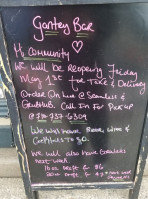 Gantry Bar
Hi Community ♡
We will be Reopening Friday
May 1st for Take & Delivery
Order Online @ Seamless &
GrubHub. Call In For Pick up
@ 718-737-6309
We will have Beer, Wine &
Cocktails To go
We will also have Growlers
next week